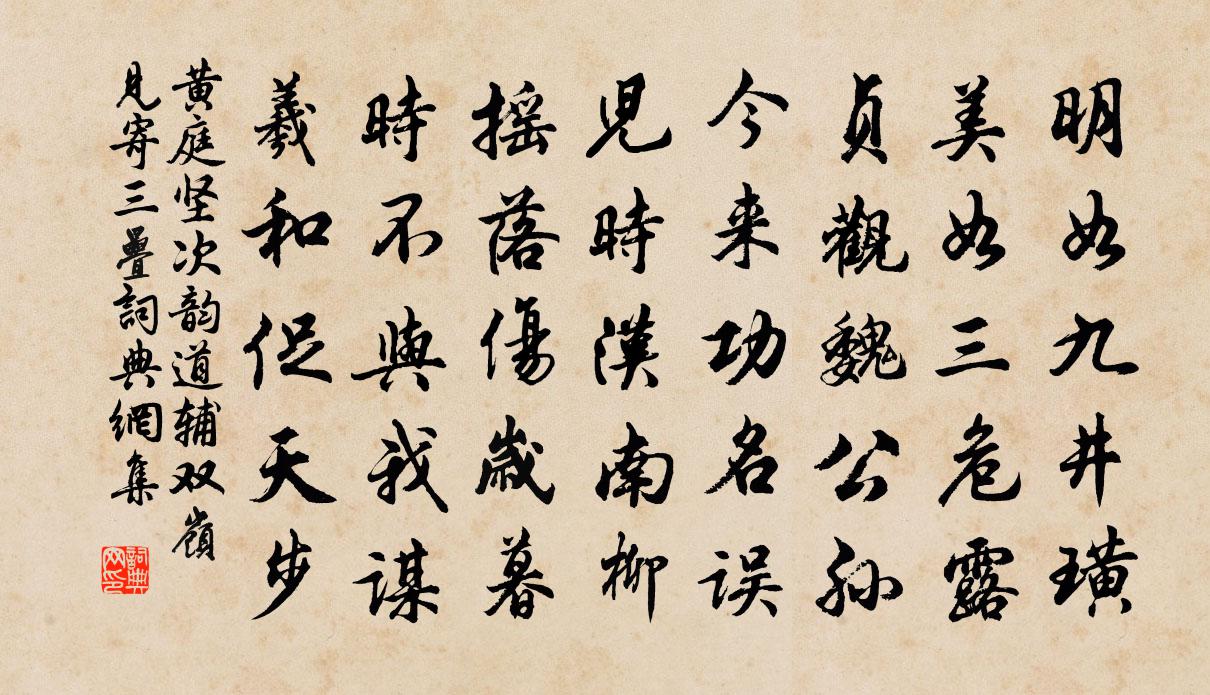 明如九井璜
美如三危露
貞觀魏公孫
今来功名误
児時漢南柳
摇落傷歲暮
時不與我谋
羲和促天步
黄庭坚次韵道辅双嶺
見寄三疊詞典網集
詞典网印